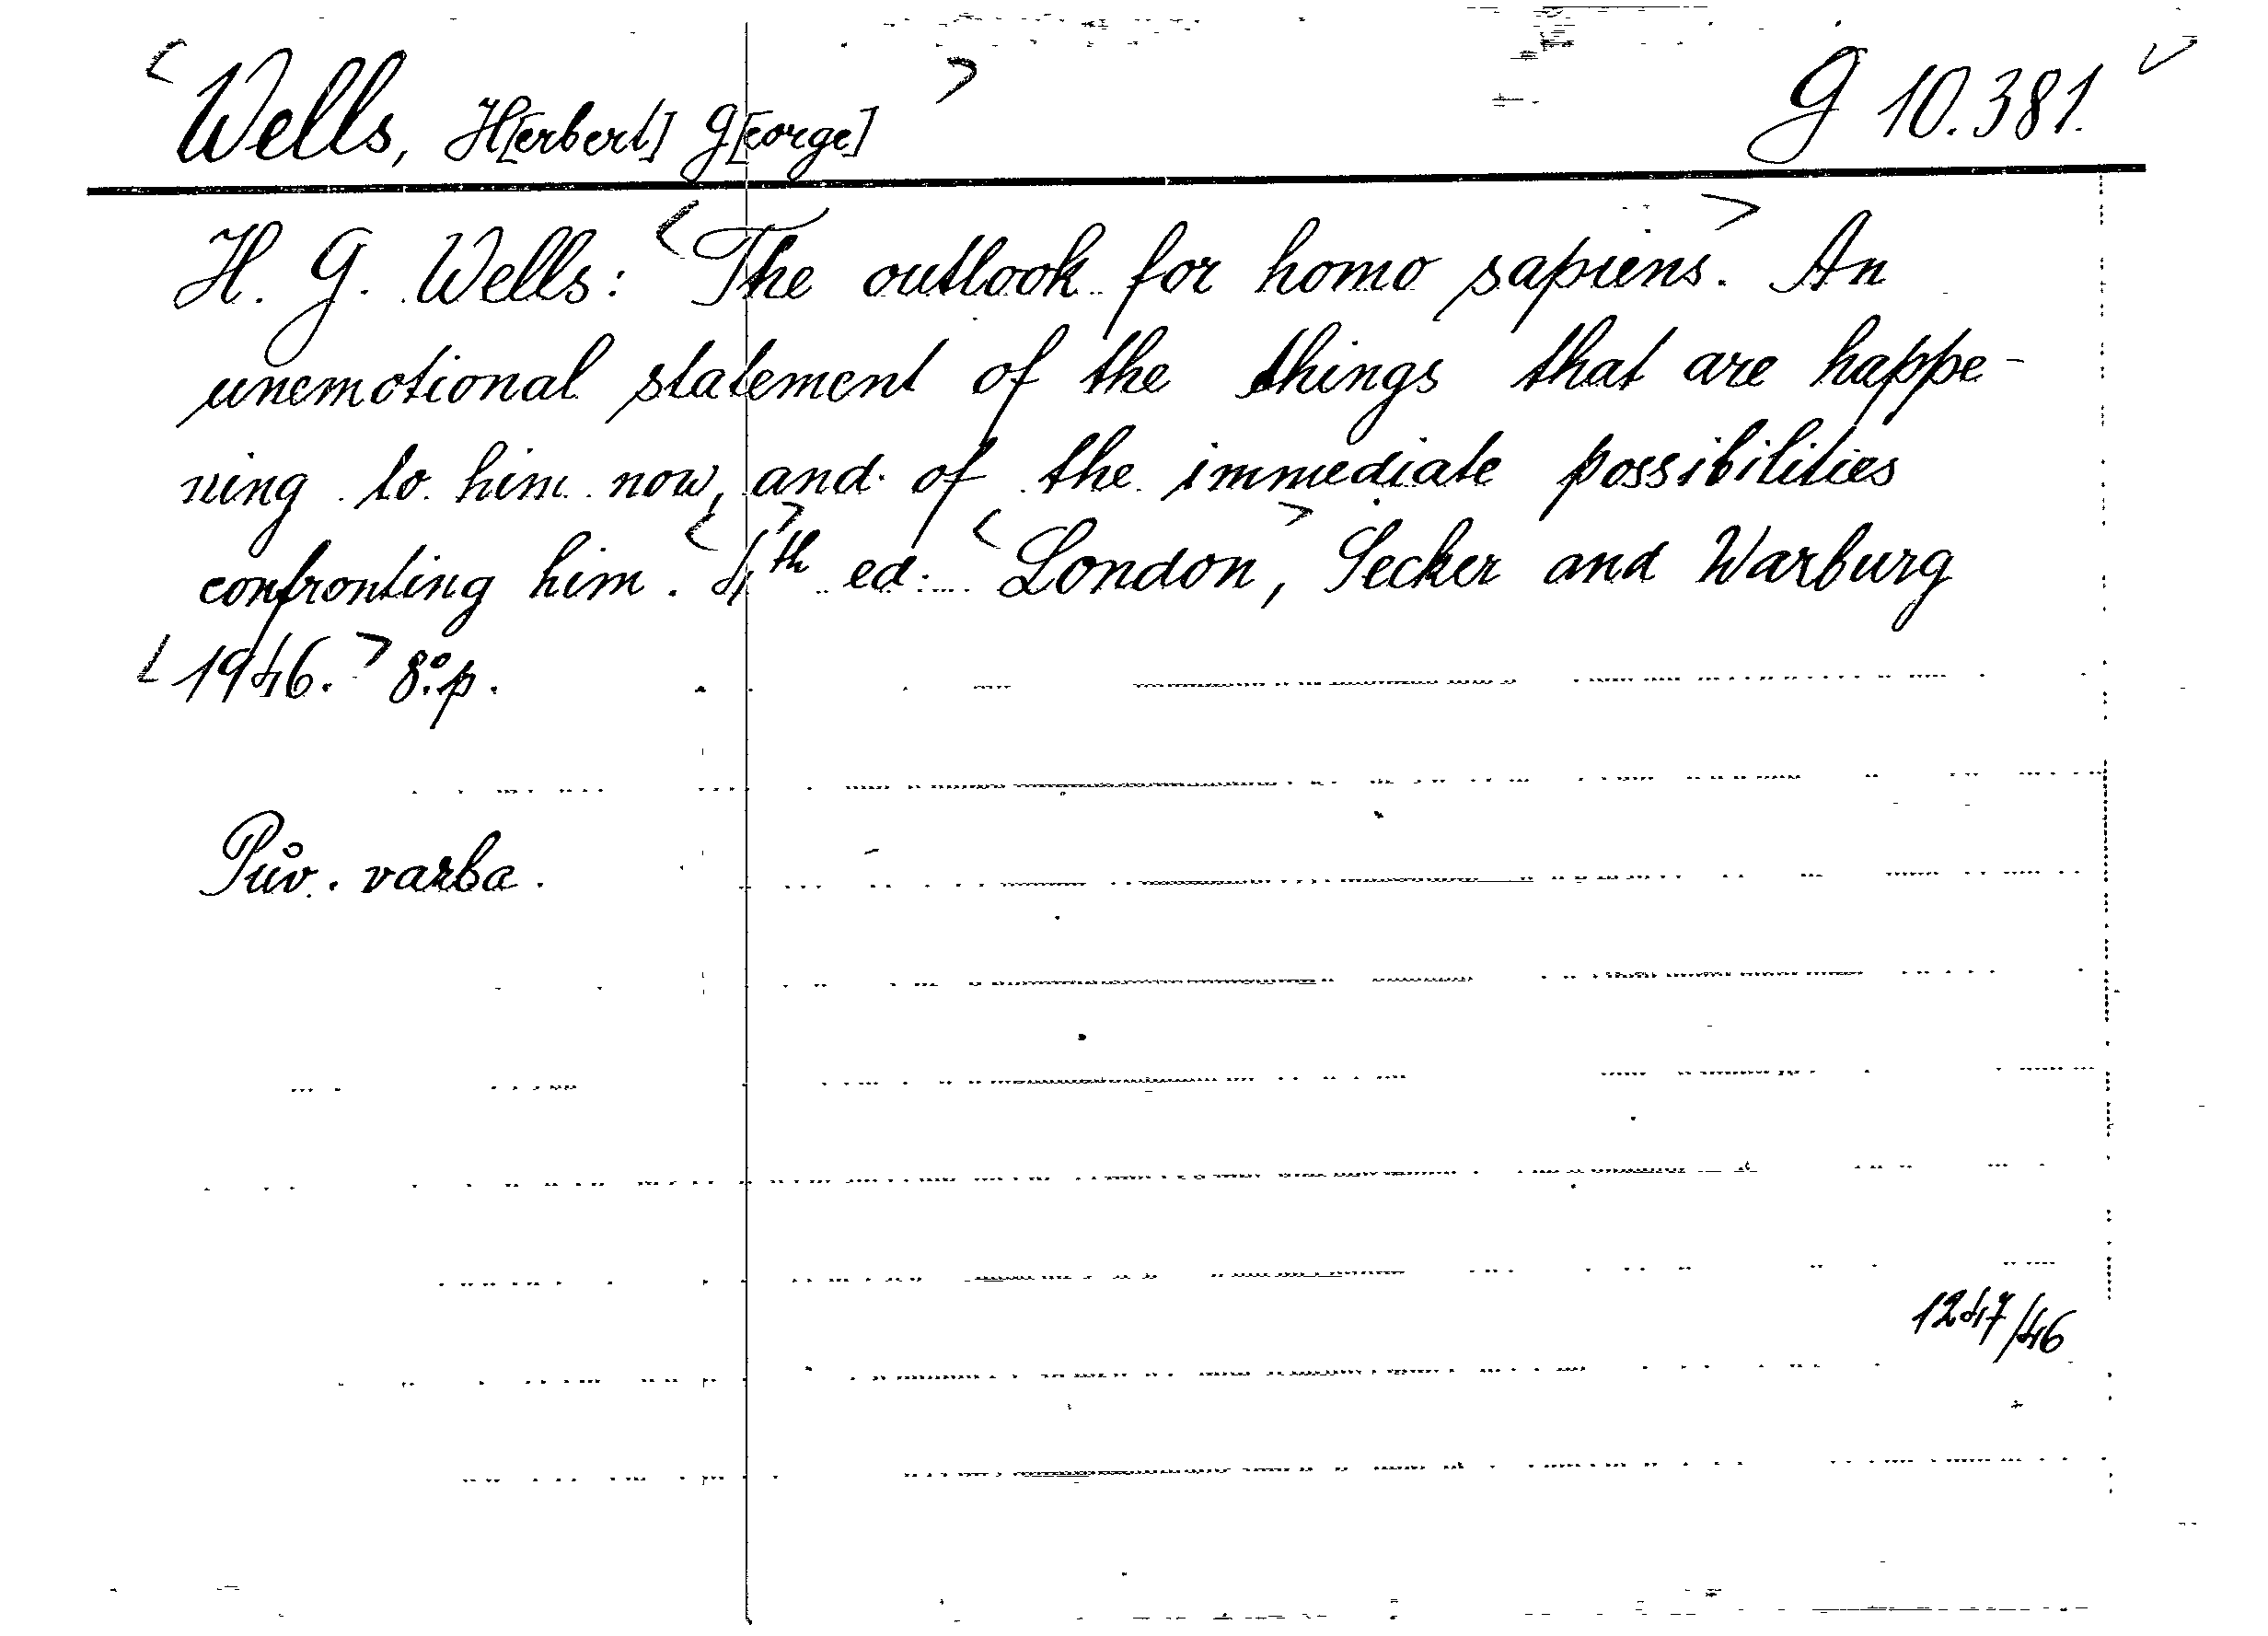 < Wells, H[erbert] G[eorge] > G 10.381.
H. G. Wells: <The outlook for homo sapiens.> An
unemotional statement of the things that are happe-
ning to him now, and of the immediate possibilities
confronting him. <4> th ed. <London>, Secker and Warburg
<1946.> 8°. p.
Pův. vazba.
1247/46